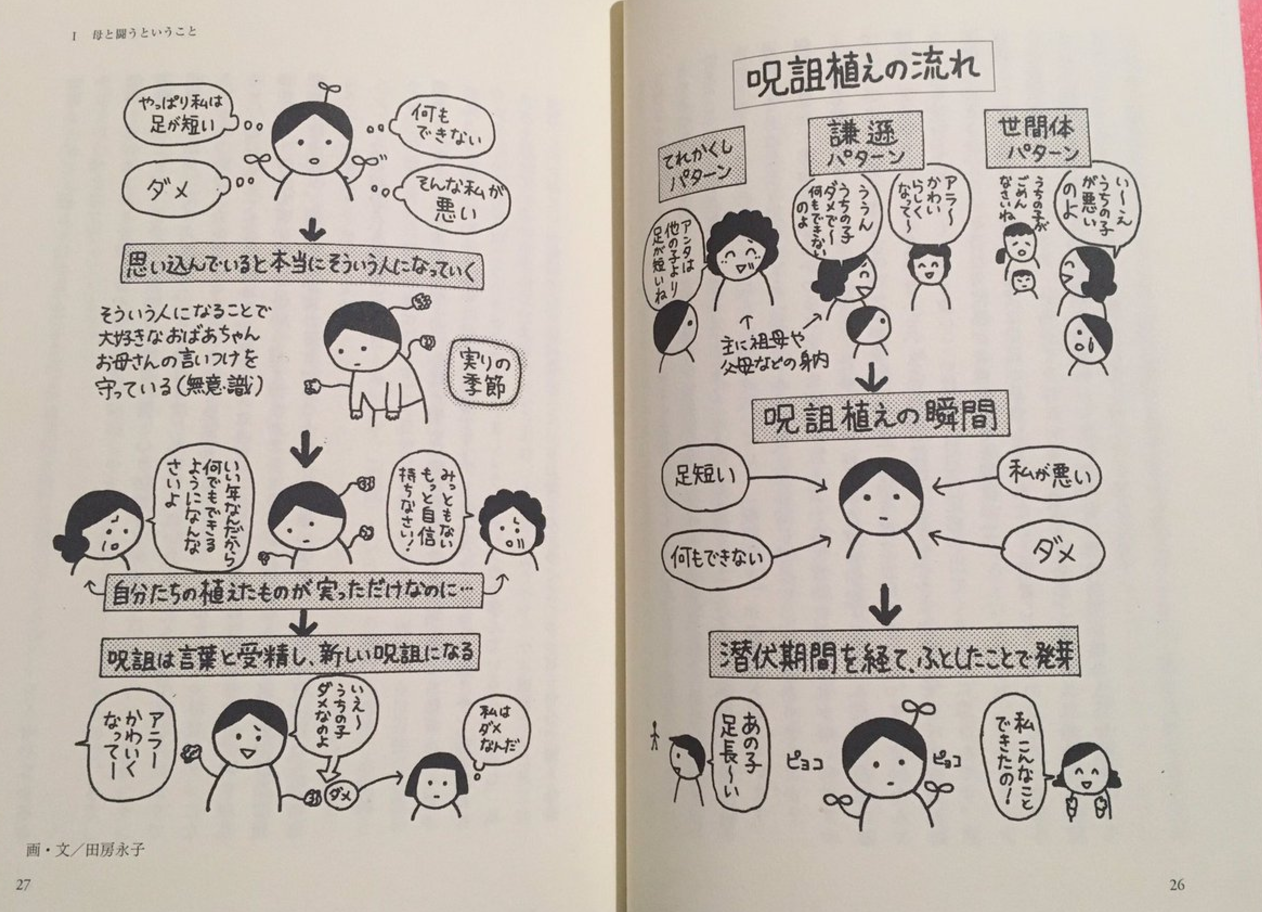 呪詛植えの流れ
世間体
パターン
い〜え
うちの子
が悪い
のよ
うちの子が
ごめん
なさいね
謙遜
パターン
アラ〜
かわい
らしく
なって〜
ううん
うちの子
ダメで〜
何もできない
のよ
てれかくし
パターン
アンタは
他の子より
足が短いね
主に祖母や
父母などの身内
呪詛植えの瞬間
足短い
私が悪い
何もできない
ダメ
潜伏期間を経て、ふとしたことで発芽
私こんなこと
できたの!
ピョコ
ピョコ
あの子
足長〜い
26
I 母と闘うということ
やっぱり私は
足が短い
何も
できない
ダメ
そんな私が
悪い
思い込んでいると本当にそういう人になっていく
そういう人になることで
大好きなおばあちゃん
お母さんの言いつけを
守っている(無意識)
実りの
季節
みっともない
もっと自信
持ちなさい!
いい年なんだから
何でもできる
ようになんな
さいよ
自分たちの植えたものが実っただけなのに…
呪詛は言葉と受精し、新しい呪詛になる
アラー
かわいく
なってー
いえ〜
うちの子
ダメなのよ
ダメ
私は
ダメ
なんだ
画・文/田房永子
27